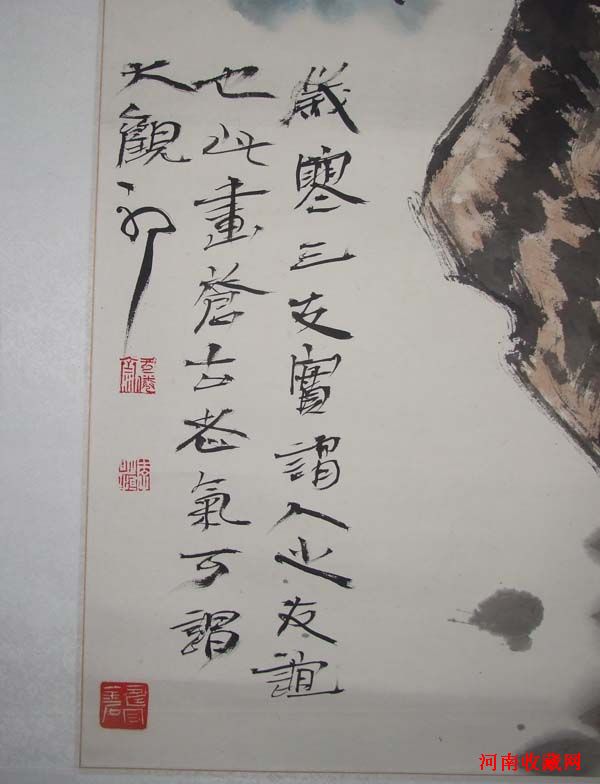 歲寒三友實謂人之友誼
也此畫蒼古老氣可謂
大觀耶
河南收藏网